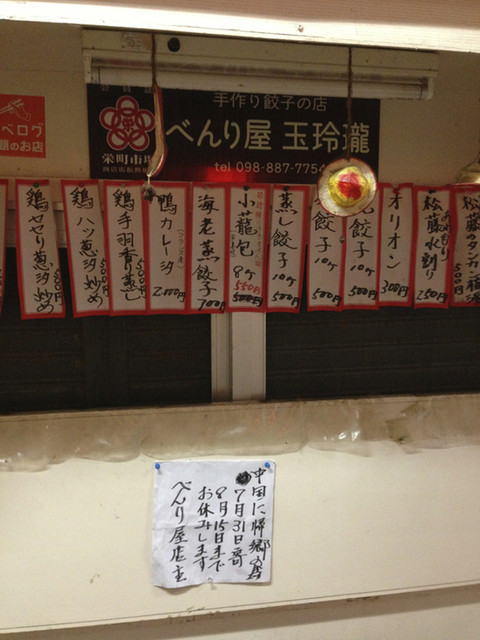 手作り餃子の店
べんり屋 玉玲瓏
tel 098-887-7754
栄町市場
べログ
題のお店
鶏セセリ葱汐炒め
500円
鶏ハツ葱汐炒め
500円
鶏手羽香り蒸し
500円
鴨カレー汐
2000円
海老蒸餃子
700円
小籠包
8ヶ
550円
蒸し餃子
10ヶ
500円
餃子
10ヶ
500円
餃子
10ヶ
500円
オリオン
300円
松藤水割り
250円
松藤
500円
中国に帰郷の為
7月31日
8月15日まで
お休みします
べんり屋店主